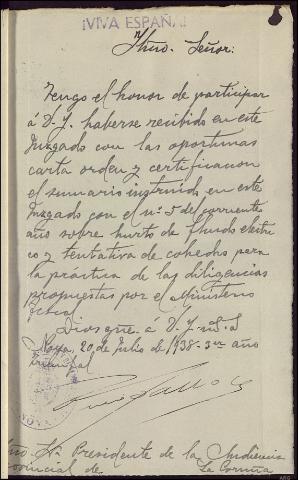 ¡VIVA ESPAÑA!
Iltmo. Señor:
Tengo el honor de participar
á D. Y. haberse recibido en este
Juzgado con las oportunas
carta orden y certificacion
el sumario instruido en este
Juzgado con el nº 5 del corriente
año sobre hurto de fluido eléctri
co y tentativa de cohecho para
la práctica de las diligencias
propuestas por el Ministerio
fiscal
Dios gue. á D. Y. ms. as
Noya, 20 de Julio de 1938- 3er año
triunfal
Presidente de la Audiencia
provincial de La Coruña